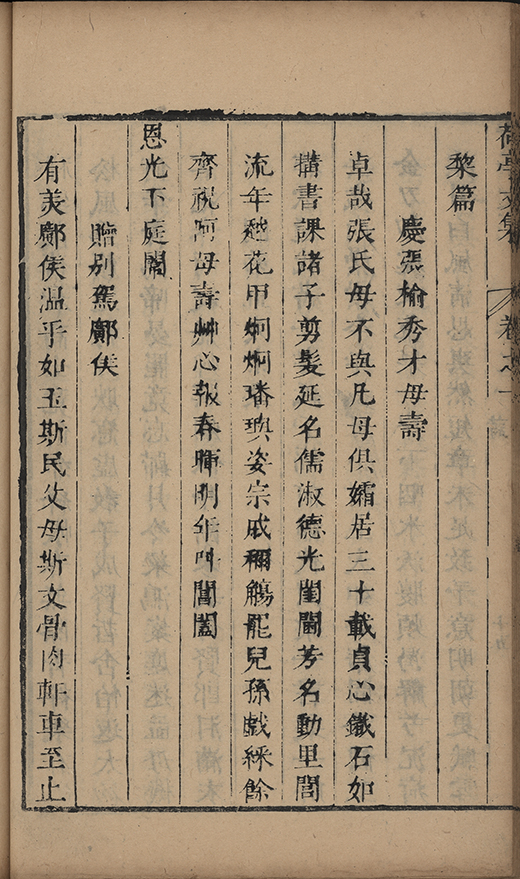 荷亭文集 卷之一
棃篇
慶張楡秀才母壽
卓哉張氏母不與凡母俱孀居三十載貞心鐵石如
購書課諸子剪髮延名儒淑德光閨閫芳名動里閭
流年越花甲烱烱璠璵姿宗戚稱觴罷兒孫戯綵餘
齊祝阿母壽艸心報春暉明年叫閶闔
恩光下庭闈
贈別駕鄺侯
有美鄺侯溫乎如玉斯民父母斯文骨肉軒車至止